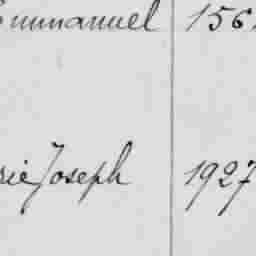 Emmanuel 156
rie Joseph 1927